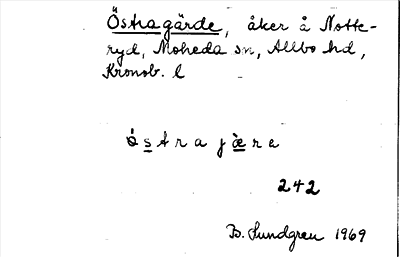 Östragärde, åker å Notte-
ryd, Moheda sn, Allbo hd,
Kronob. l
östrajære
242
B. Lundgren 1969